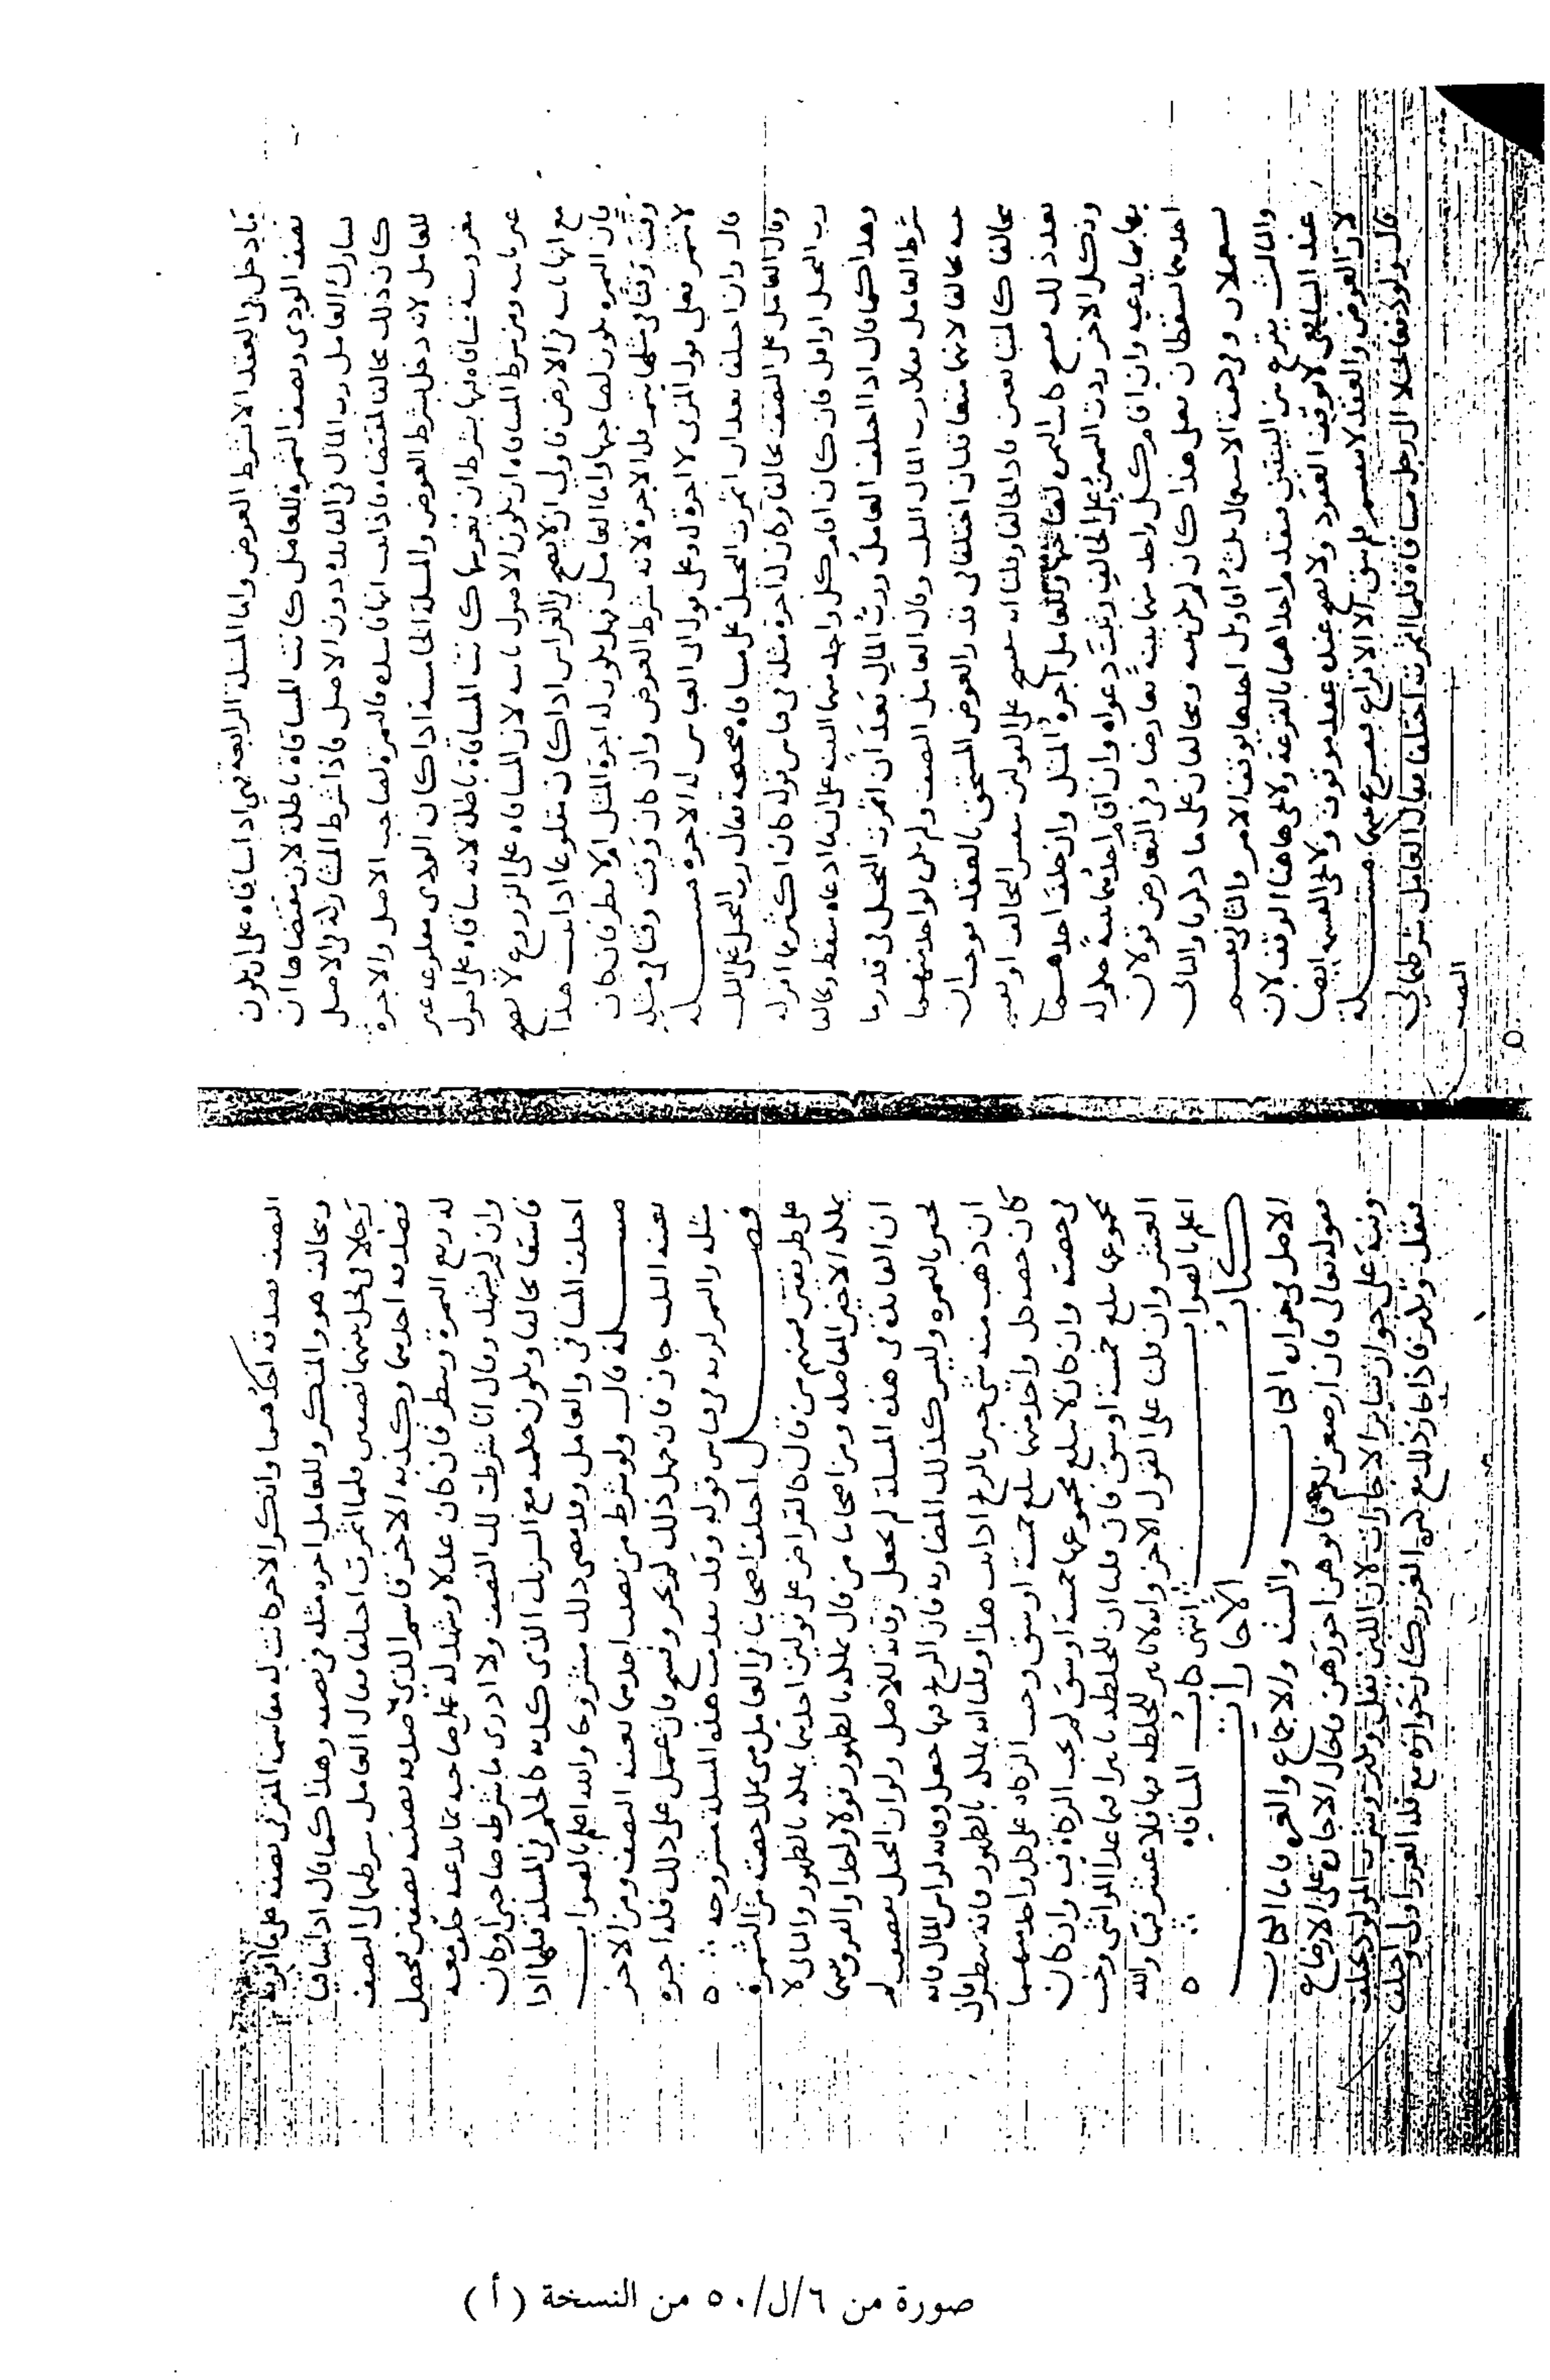 فأدخل في العقد الا شرط العوض واما المسلة الرابعة فهي اذا ساقاه على ان يكون
نصف الودي ونصف الثمرة للعامل كانت المساقاة باطلة لان مقتضاها ان
يشارك العامل رب المال في الفايدة دون الاصل فاذا شرط المشاركة في الاصل
كان ذلك مخالفا لمقتضاه فاذا ثبت انها فاسدة فالثمرة لصاحب الاصل والاجرة
للعامل لانه دخل بشرط العوض والمسلة الخامسة اذا كان الودي مقلوعا غير
مغروسة فساقاه فيها بشرط ان يغرسها كانت المساقاة باطلة لانه ساقاه على اصول
غير ثابتة ومن شرط المساقاة ان يكون الاصول ثابتة لان المساقاة على الزروع لا تصح
مع انها ثابتة في الارض فاولى ان لا يصح في الغراس اذا كان مقلوعا اذا ثبت هذا
فان الثمرة يكون لصاحبها واما العامل فهل يكون له اجرة المثل ام لا ينظر فان كان
وقت وقتا في مثلها يثمر فله الاجرة لانه شرط العوض وان كان وقت وقتا في مثله
لا تثمر فعلى قول المزني لا اجرة له وعلى قول ابي العباس له الاجرة مسلة
قال وان اختلفا بعد ان اثمرت النخل على مساقاة صحيحة فقال رب النخل على الثلث
وقال العامل على النصف تحالفا وكان له اجرة مثله في قياس قوله كان اكثر مما اقر له
رب النخل او اقل فان كان اقام كل واحد منهما البينة على ما ادعاه سقط وتحالفا
وهذا كما قال اذا اختلف العامل ورب المال بعد ان اثمرت النخل في قدر ما
شرط العامل فقال رب المال الثلث وقال العامل النصف ولم يكن لواحد منهما
بينة تحالفا لانهما متعاقدان اختلفا في قدر العوض المستحق بالعقد فوجب ان
يتحالفا كالمتبايعين فاذا تحالفا وقلنا انه يفسخ على القولين بنفس التحالف او
بعد ذلك فسخ كانت الثمرة لصاحبها وللعامل اجرة المثل وان حلف احدهما
ونكل الاخر ردت اليمين على الحالف وثبت دعواه وان اقام احدهما بينة حكم له
بها بما يدعيه وان اقام كل واحد منهما بينة تعارضتا وفي التعارض قولان
احدهما يسقطان فعلى هذا كان لم يكن بينة ويتحالفان على ما ذكرنا والثاني
يستعملان وفي كيفية الاستعمال ثلث اقاويل احدها يوقف الامر والثاني يقسم
والثالث يقرع بين البينتين
عند الشافعي لا توقف العقود ولا يصح عنده عقد موقوف ولا يجي القسمة ايضا
لان العوض والعقد لا ينقسم فلم يبق الا الاقراع فيقرع بينهما مسلة
قال ولو دفعا نخلا الى رجل مساقاة فلما اثمرت اختلفا فقال العامل شرطتما لي
النصف
النصف فصدقه احدهما وانكر الاخر كانت له مقاسمة المقر في نصفه على ما اقر به
وتحالف هو والمنكر وللعامل اجرة مثله في نصفه وهذا كما قال اذا ساقيا
رجلا في نخل بينهما نصفين فلما اثمرت اختلفا فقال العامل شرطتما لي النصف
فصدقه احدهما وكذبه الاخر قاسم الذي صدقه نصفه نصفين
له ربع الثمرة وينظر فان كان عدلا وشهد له على صاحبه بما يدعيه حلف معه
وان لم يشهد وقال انا شرطت لك النصف ولا ادري ما شرطه صاحبي او كان
فاسقا تحالفا ويكون حكمه مع الشريك الذي كذبه كالحكم في المسلة قبلها اذا
اختلف المساقي والعامل وقد مضى ذلك مشروحا والله اعلم بالصواب
مسلة قال ولو شرط من نصيب احدهما بعينه النصف ومن الاخر
بعينه الثلث جاز فان جهلا ذلك لم يجز وفسخ فان عمل على ذلك فله اجرة
مثله والثمر لربه في قياس قوله وقد تقدمت هذه المسلة مشروحة ۞ ٥
فصل اختلف اصحابنا في العامل متى يملك حصته من الثمرة
على طريقين فمنهم من قال كالقراض على قولين احدهما يملك بالظهور والثاني لا
يملك الا حين المقاصلة ومن اصحابنا من قال يملك بالظهور قولا واحدا والفرق بينهما
ان الفايدة في هذه المسلة لم يجعل وقاية للاصل ولو ان النخل بعضه لم
يجبر بالثمرة وليس كذلك المضاربة فان الربح فيها جعل وقاية لراس المال فانه
ان ذهب منه شي جبر بالربح اذا ثبت هذا وقلنا انه يملك بالظهور فانه ينظر فان
كان حصة كل واحد منهما يبلغ خمسة اوسق وجب الزكاة على كل واحد منهما
في حصته وان كان لا يبلغ مجموعها خمسة اوسق لم يجب الزكاة فيه وان كان
مجموعها يبلغ خمسة اوسق فان قلنا ان للخلطة تاثيرا فيما عدا المواشي وجب
العشر وان قلنا على القول الاخر وانه لا تاثير للخلطة فيها فلا عشر فيها والله
اعلم بالصواب انتهى كتاب المساقاة ۞ ٥
كتاب الاجارات
الاصل في جواز الكتاب والسنة والاجماع والعبرة فاما الكتاب
فقوله تعالى فان ارضعن لكم فاتوهن اجورهن فاجاز الاجارة على الارضاع
ونبه على جواز ساير الاجارات لان اللبن يقل ويكثر وشرب المولود يختلف
فيقل ويكثر فاذا جاز ذلك مع كثرة الغرر كان جوازه مع قلة الغرر اولى
صورة من ٦/ل/٥٠ من النسخة (أ)